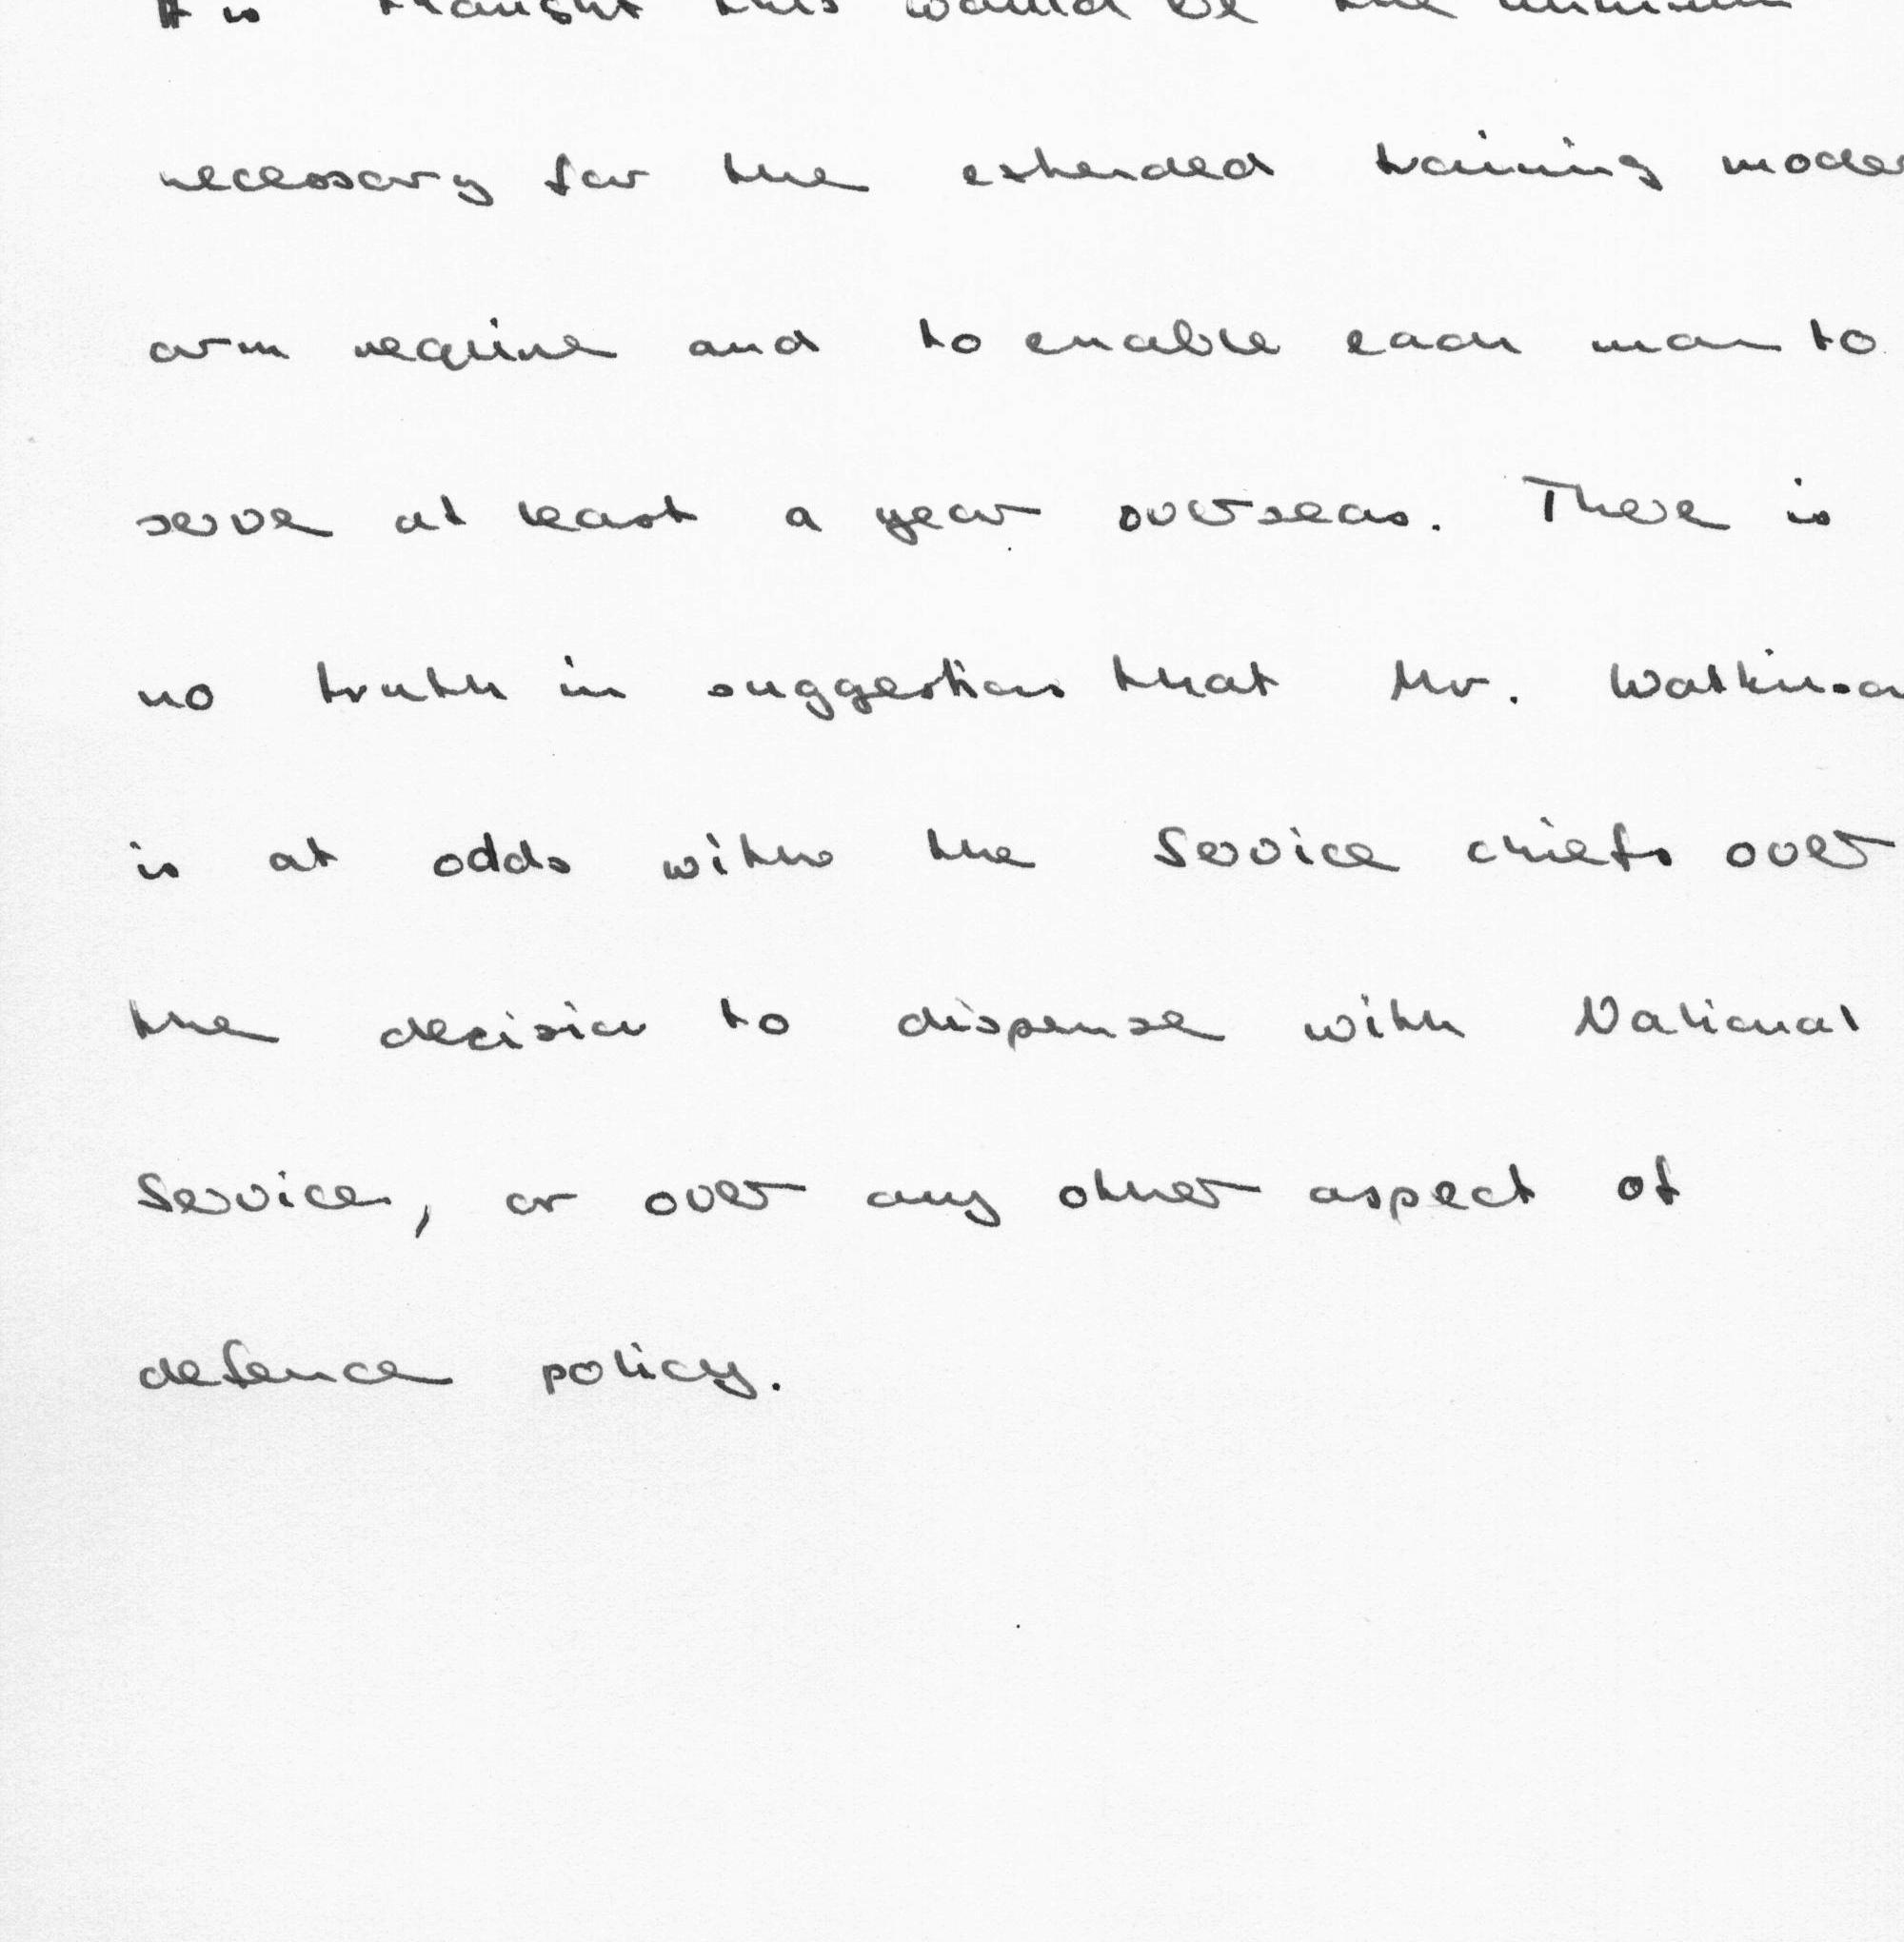 It is thought this would be the minimum
necessary for the extended training moder
arm require and to enable each man to
serve at least a year overseas. There is
no truth in suggestions that Mr. Watkinso
is at odds with the Service chiefs over
the decision to dispense with National
Service, or over any other aspect of
defence policy.